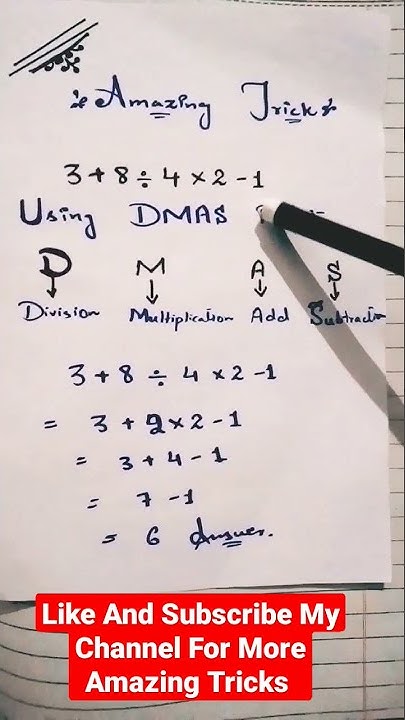 Amazing Tricks
3 + 8 ÷ 4 × 2 - 1
Using DMAS
D M A S
Division Multiplication Add Subtraction
3 + 8 ÷ 4 × 2 - 1
= 3 + 2 × 2 - 1
= 3 + 4 - 1
= 7 - 1
= 6 Answer.
Like And Subscribe My
Channel For More
Amazing Tricks